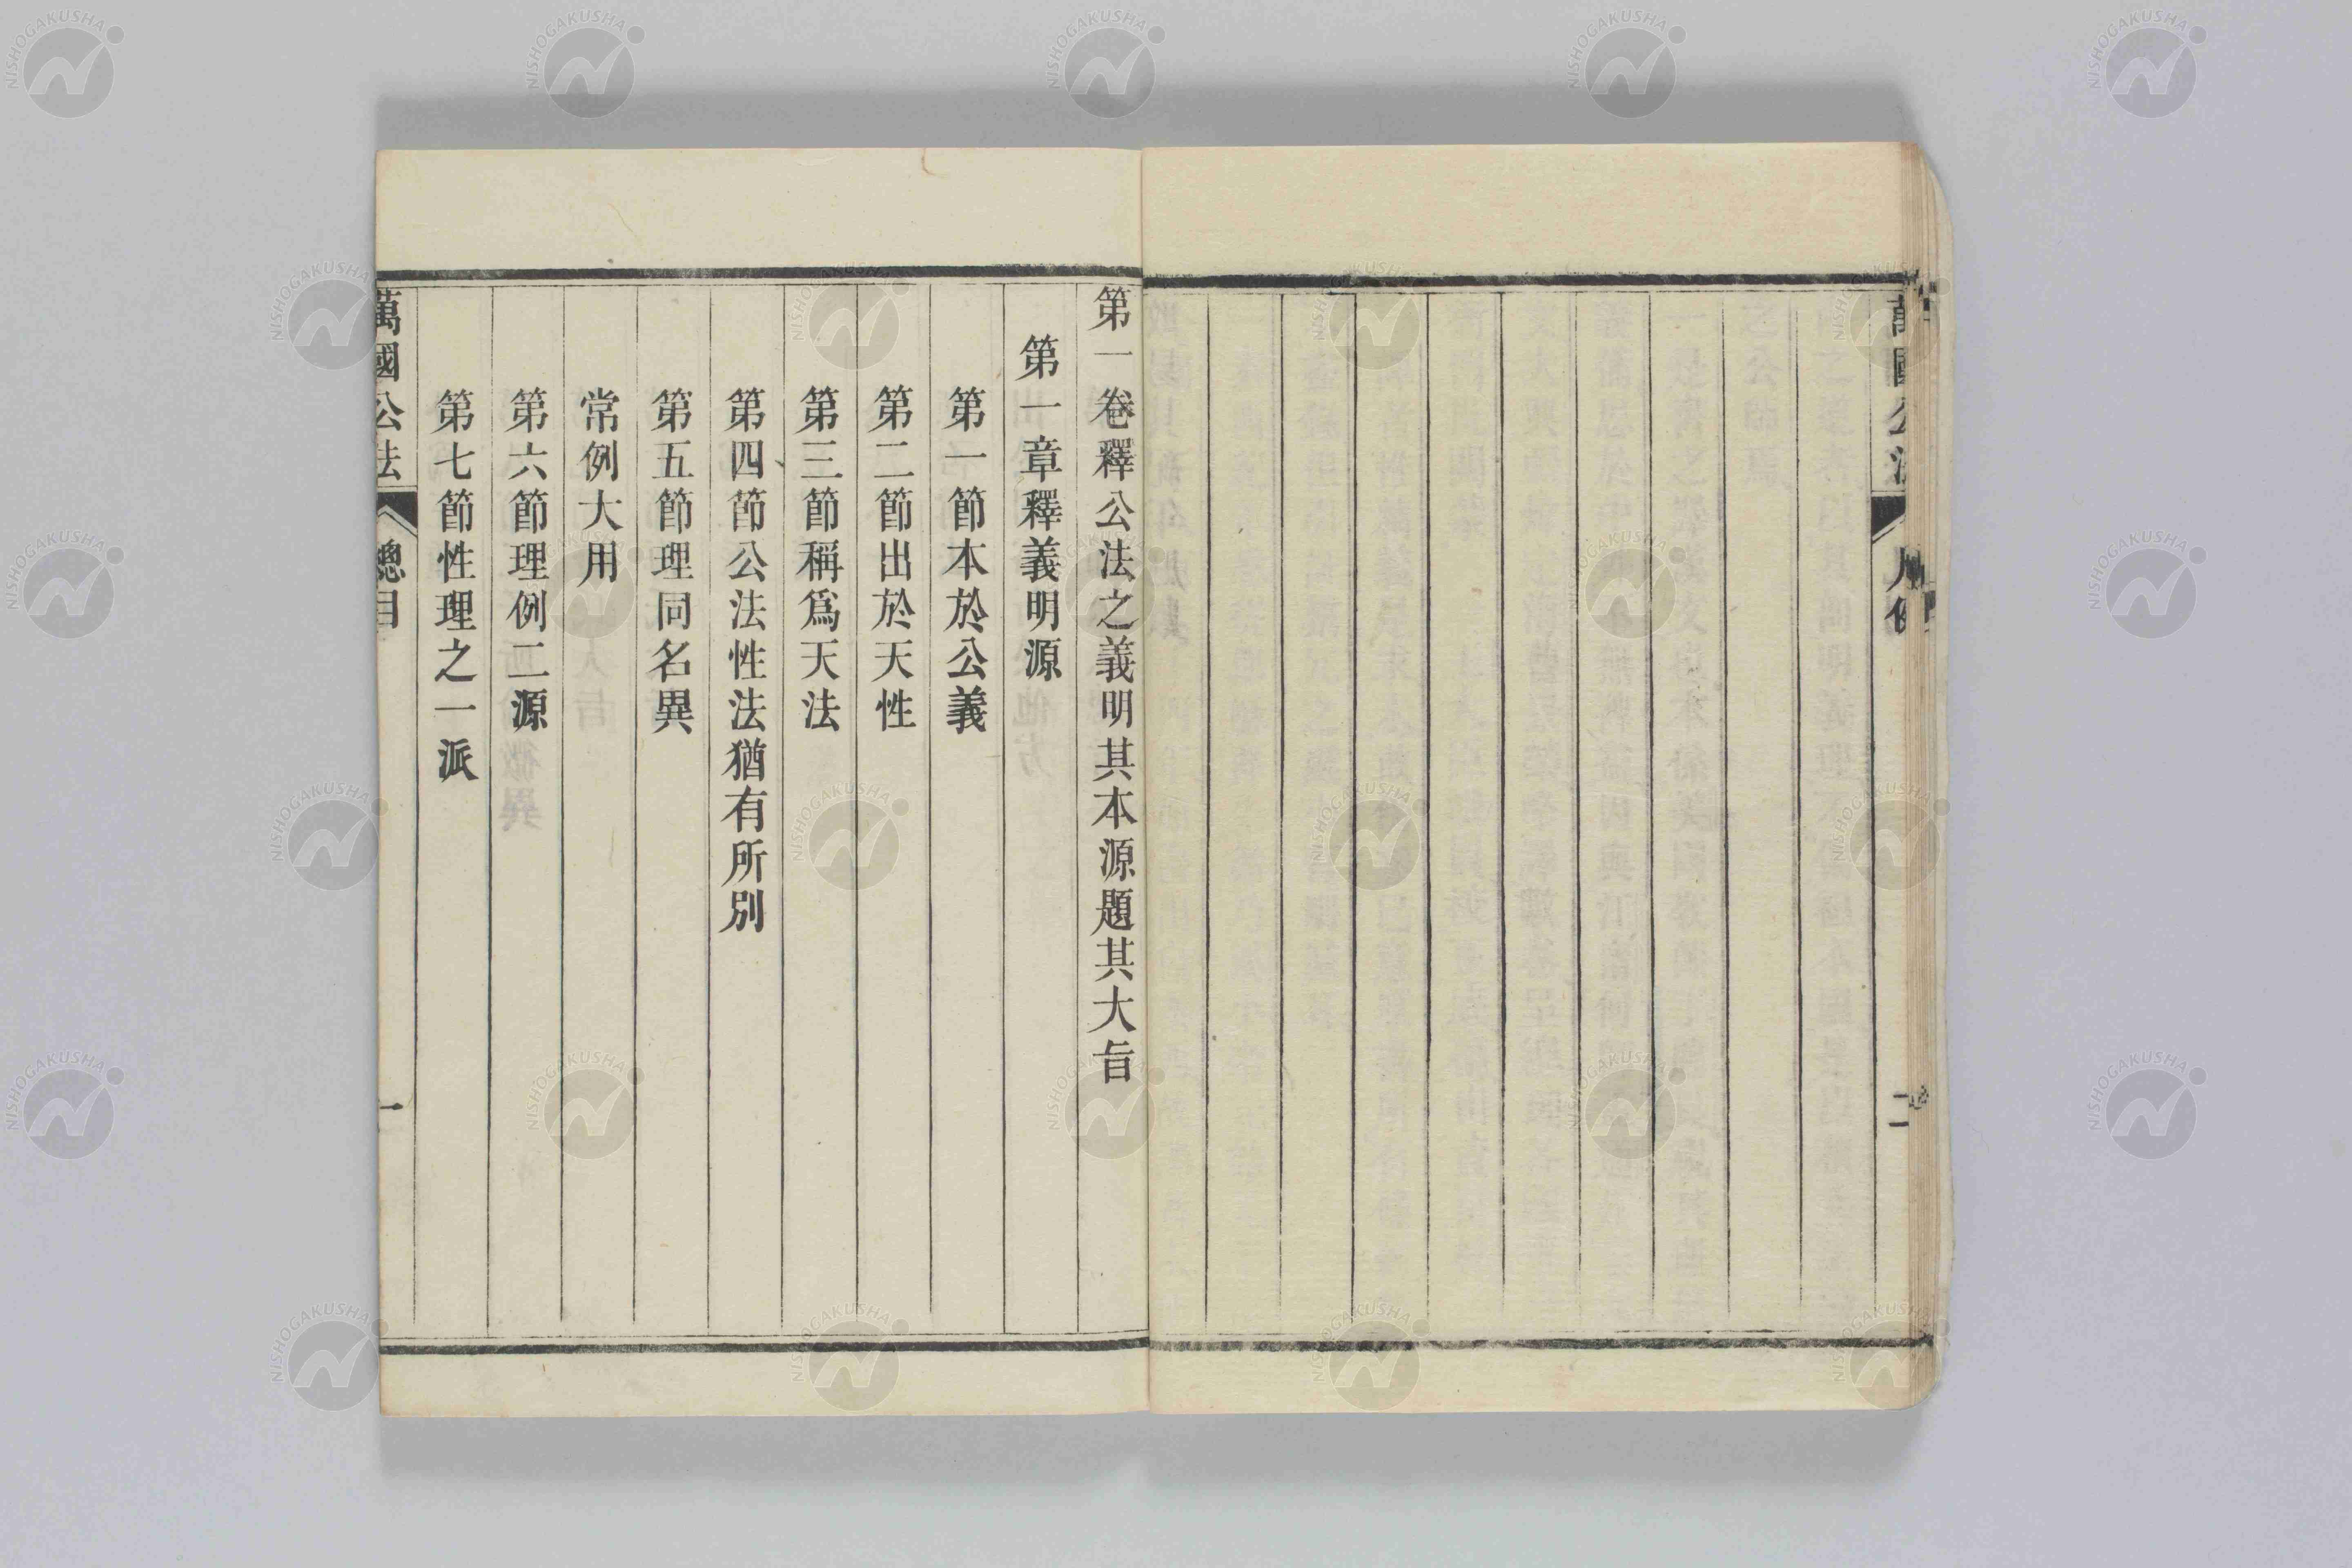 萬國公法
凡例
二
第一卷釋公法之義明其本源題其大旨
第一章釋義明源
第一節本於公義
第二節出於天性
第三節稱爲天法
第四節公法性法猶有所別
第五節理同名異
常例大用
第六節理例二源
第七節性理之一派
萬國公法
總目
一
NISHOGAKUSHA